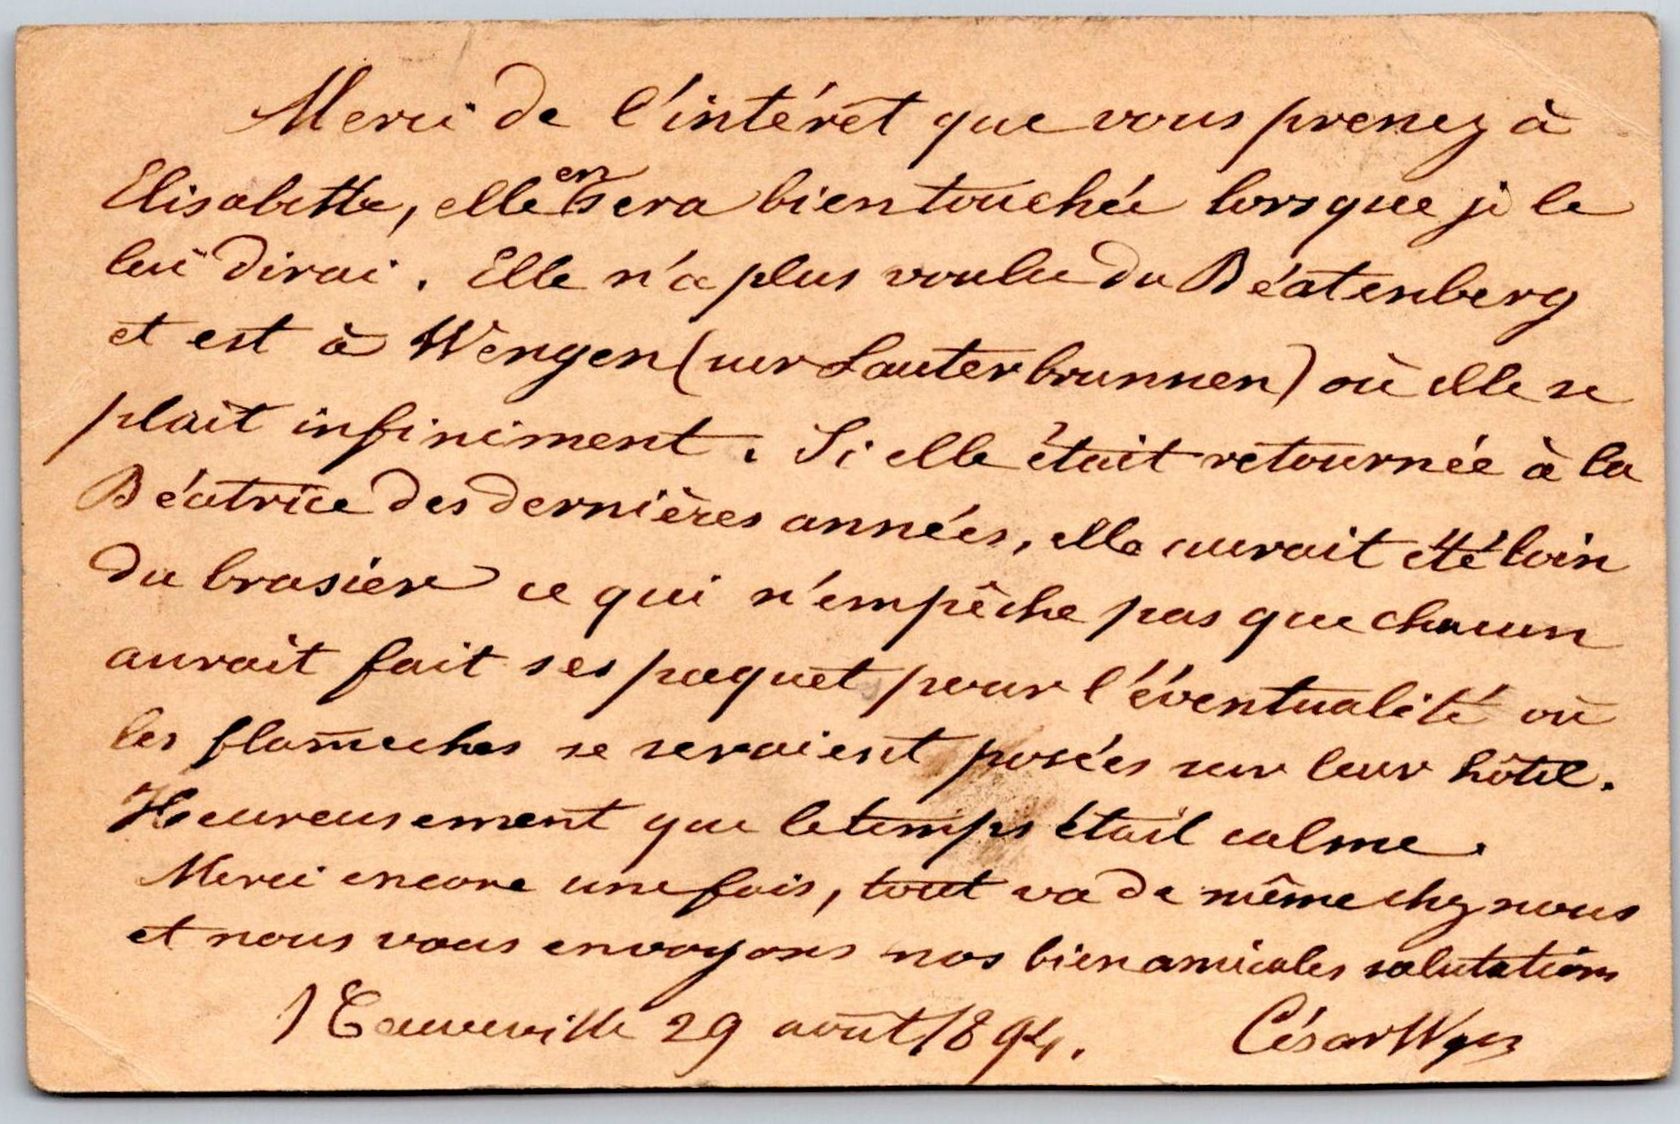 Merci de l'intérêt que vous prenez à
Elisabeth, elle en sera bien touchée lorsque je le
lui dirai. Elle n'a plus voulu du Béatenberg
et est à Wengen (sur Lauterbrunnen) où elle se
plait infiniment. Si elle était retournée à la
Béatrice des dernières années, elle aurait été loin
du brasier ce qui n'empêche pas que chacun
aurait fait ses paquet pour l'éventualité où
les flamèches se seraient posées sur leur hôtel.
Heureusement que le temps était calme.
Merci encore une fois, tout va de même chez nous
et nous vous envoyons nos bien amicales salutations
Neuveville 29 août 1894. César Wyss